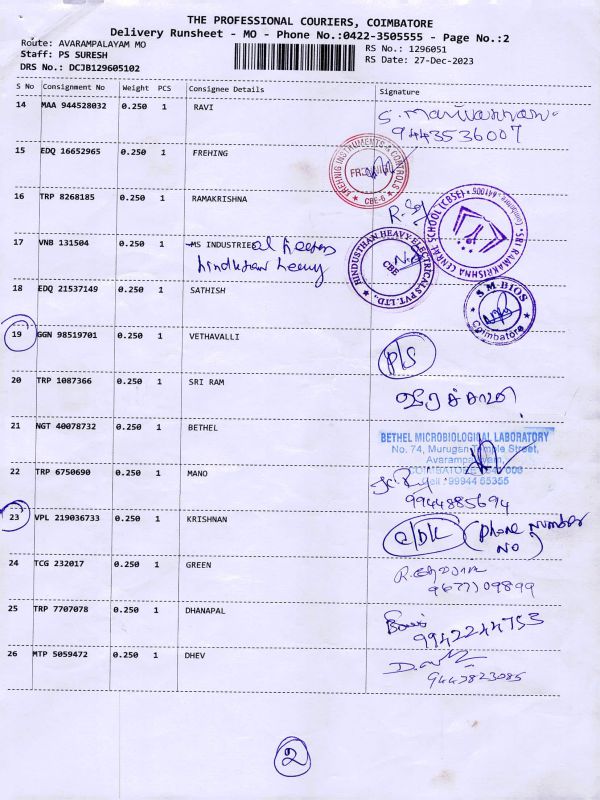 THE PROFESSIONAL COURIERS, COIMBATORE
Delivery Runsheet - MO - Phone No.:0422-3505555 - Page No.:2
Route: AVARAMPALAYAM MO
RS No.: 1296051
Staff: PS SURESH
RS Date: 27-Dec-2023
DRS No.: DCJB129605102
S No Consignment No Weight PCS Consignee Details Signature
14 MAA 944528032 0.250 1 RAVI
9443536007
15 EDQ 16652965 0.250 1 FREHING
FREHNIG INSTRUMENTS & CONTROLS
CBE-6
16 TRP 8268185 0.250 1 RAMAKRISHNA
SRI RAMAKRISHNA SCHOOL (CBSE)
17 VNB 131504 0.250 1 MS INDUSTRIE
hindusthan heavy
HINDUSTHAN HEAVY ELECTRICALS PVT. LTD.,
CBE
18 EDQ 21537149 0.250 1 SATHISH
S M-BIOS
Coimbatore
19 GGN 98519701 0.250 1 VETHAVALLI
P/S
20 TRP 1087366 0.250 1 SRI RAM
21 NGT 40078732 0.250 1 BETHEL
BETHEL MICROBIOLOGICAL LABORATORY
No. 74, Murugan Temple Street,
Avarampalayam,
22 TRP 6750690 0.250 1 MANO
9944885694
23 VPL 219036733 0.250 1 KRISHNAN
c/DK (Phone Number
NO)
24 TCG 232017 0.250 1 GREEN
9677109899
25 TRP 7707078 0.250 1 DHANAPAL
9942244753
26 MTP 5059472 0.250 1 DHEV
9443823085
2